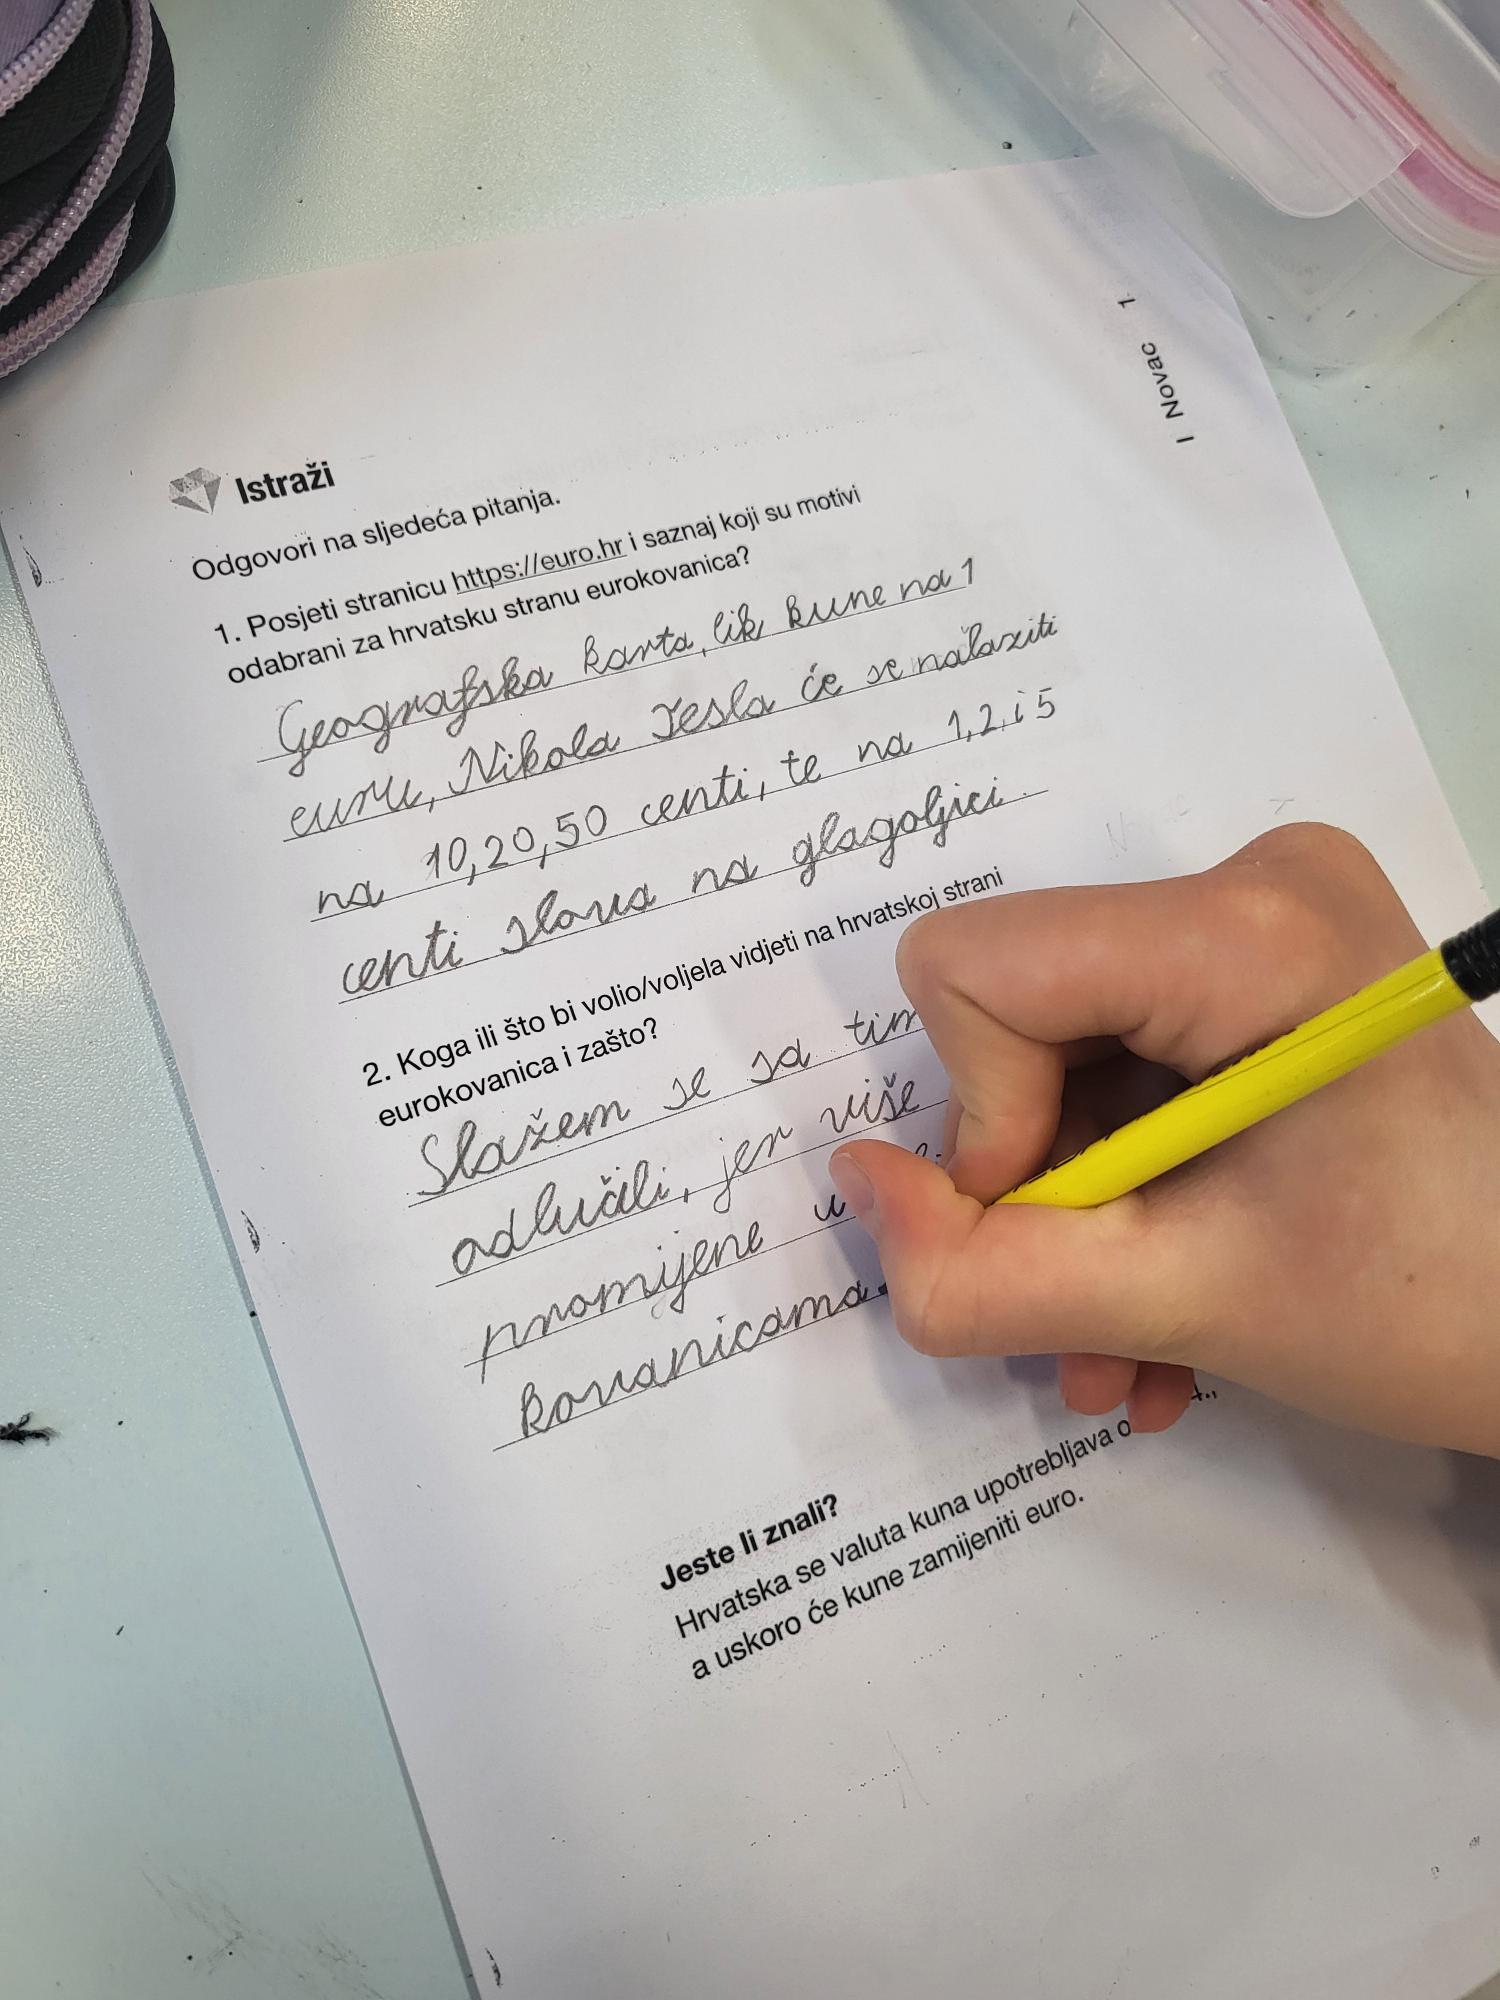 Istraži
Odgovori na sljedeća pitanja.
1. Posjeti stranicu https://euro.hr i saznaj koji su motivi
odabrani za hrvatsku stranu eurokovanica?
Geografska karta, lik kune na 1
euru, Nikola Tesla će se nalaziti
na 10,20,50 centi, te na 1,2,i 5
centi slova na glagoljici
2. Koga ili što bi volio/voljela vidjeti na hrvatskoj strani
eurokovanica i zašto?
Slažem se sa
odlučili, jer više
promijene
kovanicama.
Jeste li znali?
Hrvatska se valuta kuna upotrebljava
a uskoro će kune zamijeniti euro.
I Novac 1